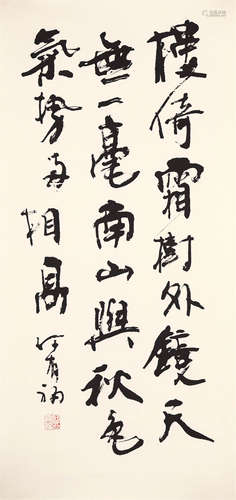 樓倚霜樹外鏡天
無一毫南山與秋色
氣勢兩相高